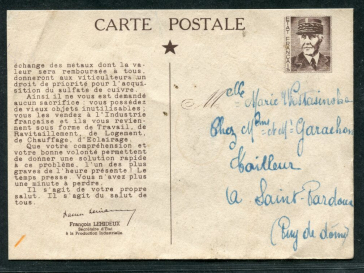 CARTE POSTALE
ETAT FRANÇAIS
échange des métaux dont la va-
leur sera remboursée à tous,
donneront aux viticulteurs un
droit de priorité pour l'acqui-
sition du sulfate de cuivre.
Ainsi il ne vous est demandé
aucun sacrifice : vous possédez
de vieux objets inutilisables ;
vous les vendez à l'Industrie
Française et ils vous revien-
nent sous forme de Travail, de
Ravitaillement, de Logement,
de Chauffage, d'Eclairage
Que votre compréhension et
votre bonne volonté permettent
de donner une solution rapide
à ce problème. l'un des plus
graves de l'heure présente ! Le
temps presse. Vous n'avez plus
une minute à perdre.
Il s'agit de votre propre
salut. Il s'agit du salut de
tous.
François LEHIDEUX
Secrétaire d'Etat
à la Production Industrielle
Melle Marie
Chez Mme et Mr Garachon
Tailleur
à Saint-Pardoux
(Puy de dome)